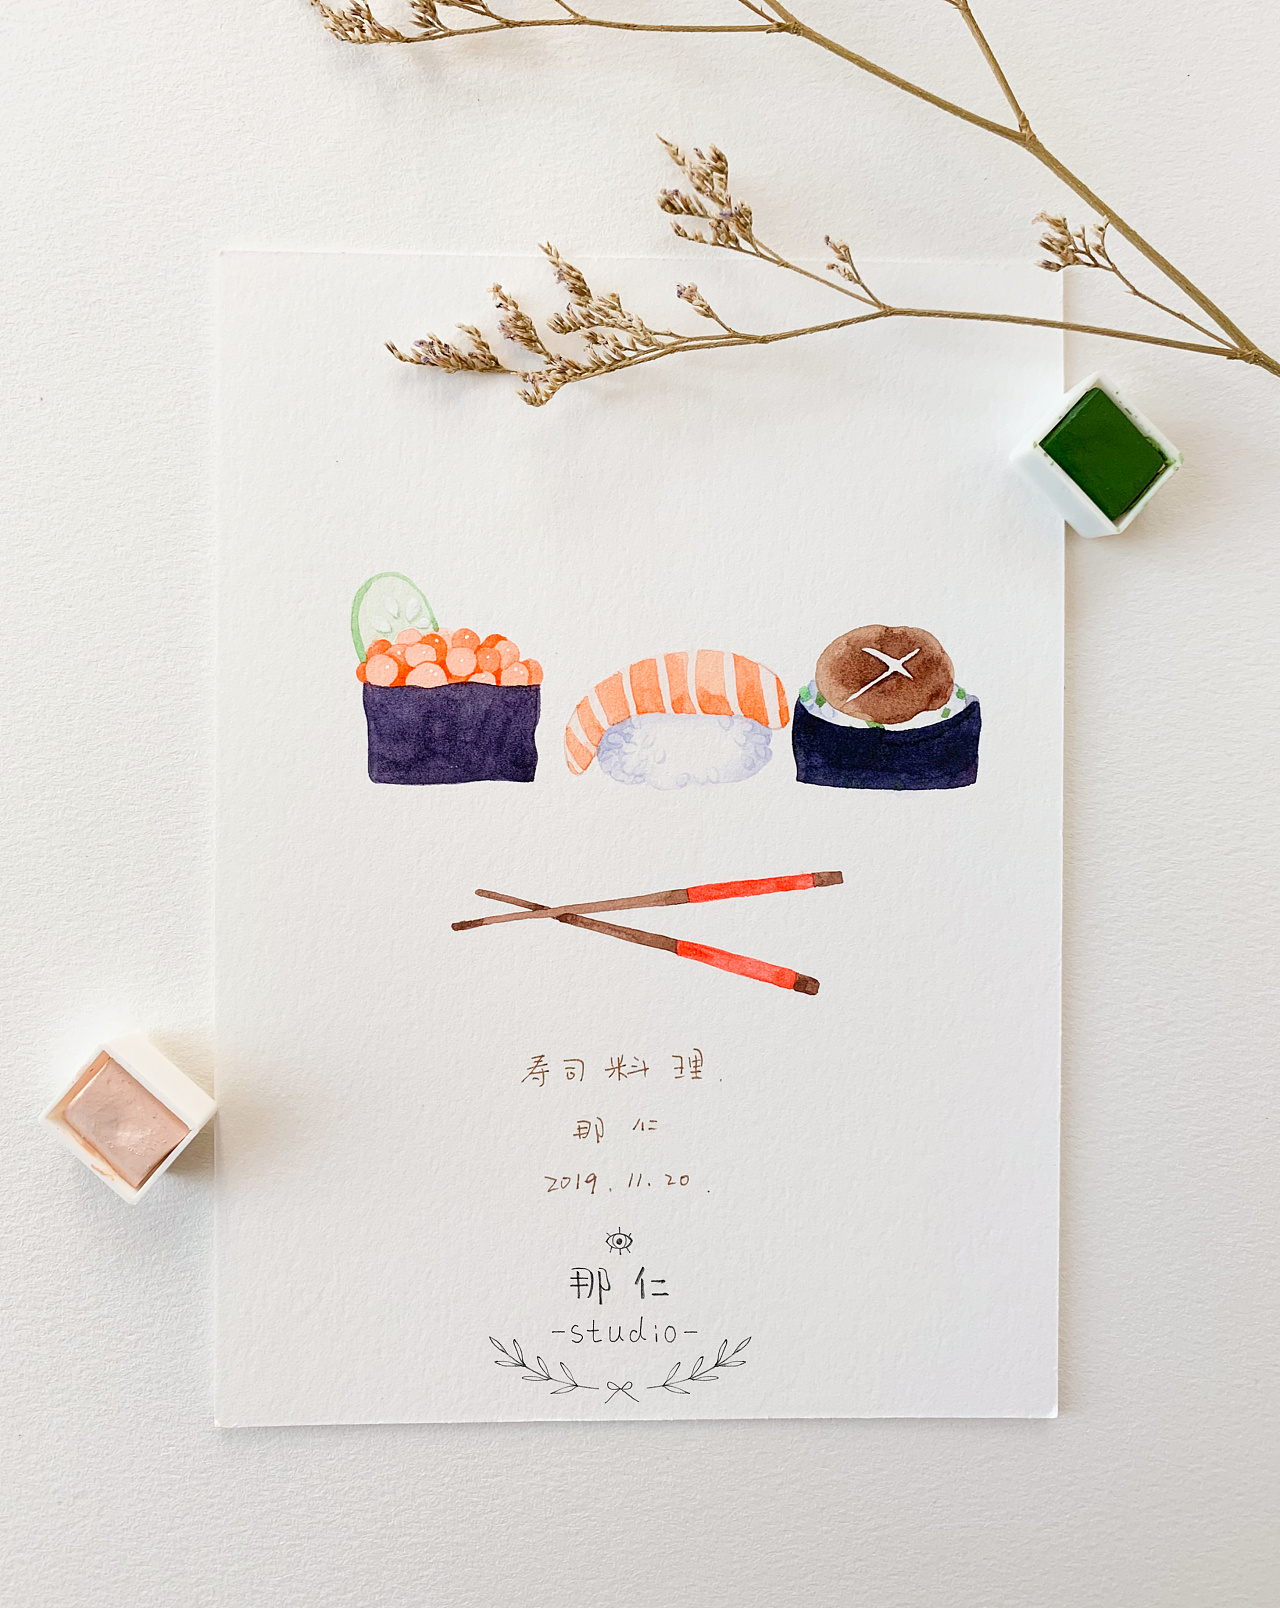 寿司料理.
那仁
2019.11.20.
那仁
-studio-